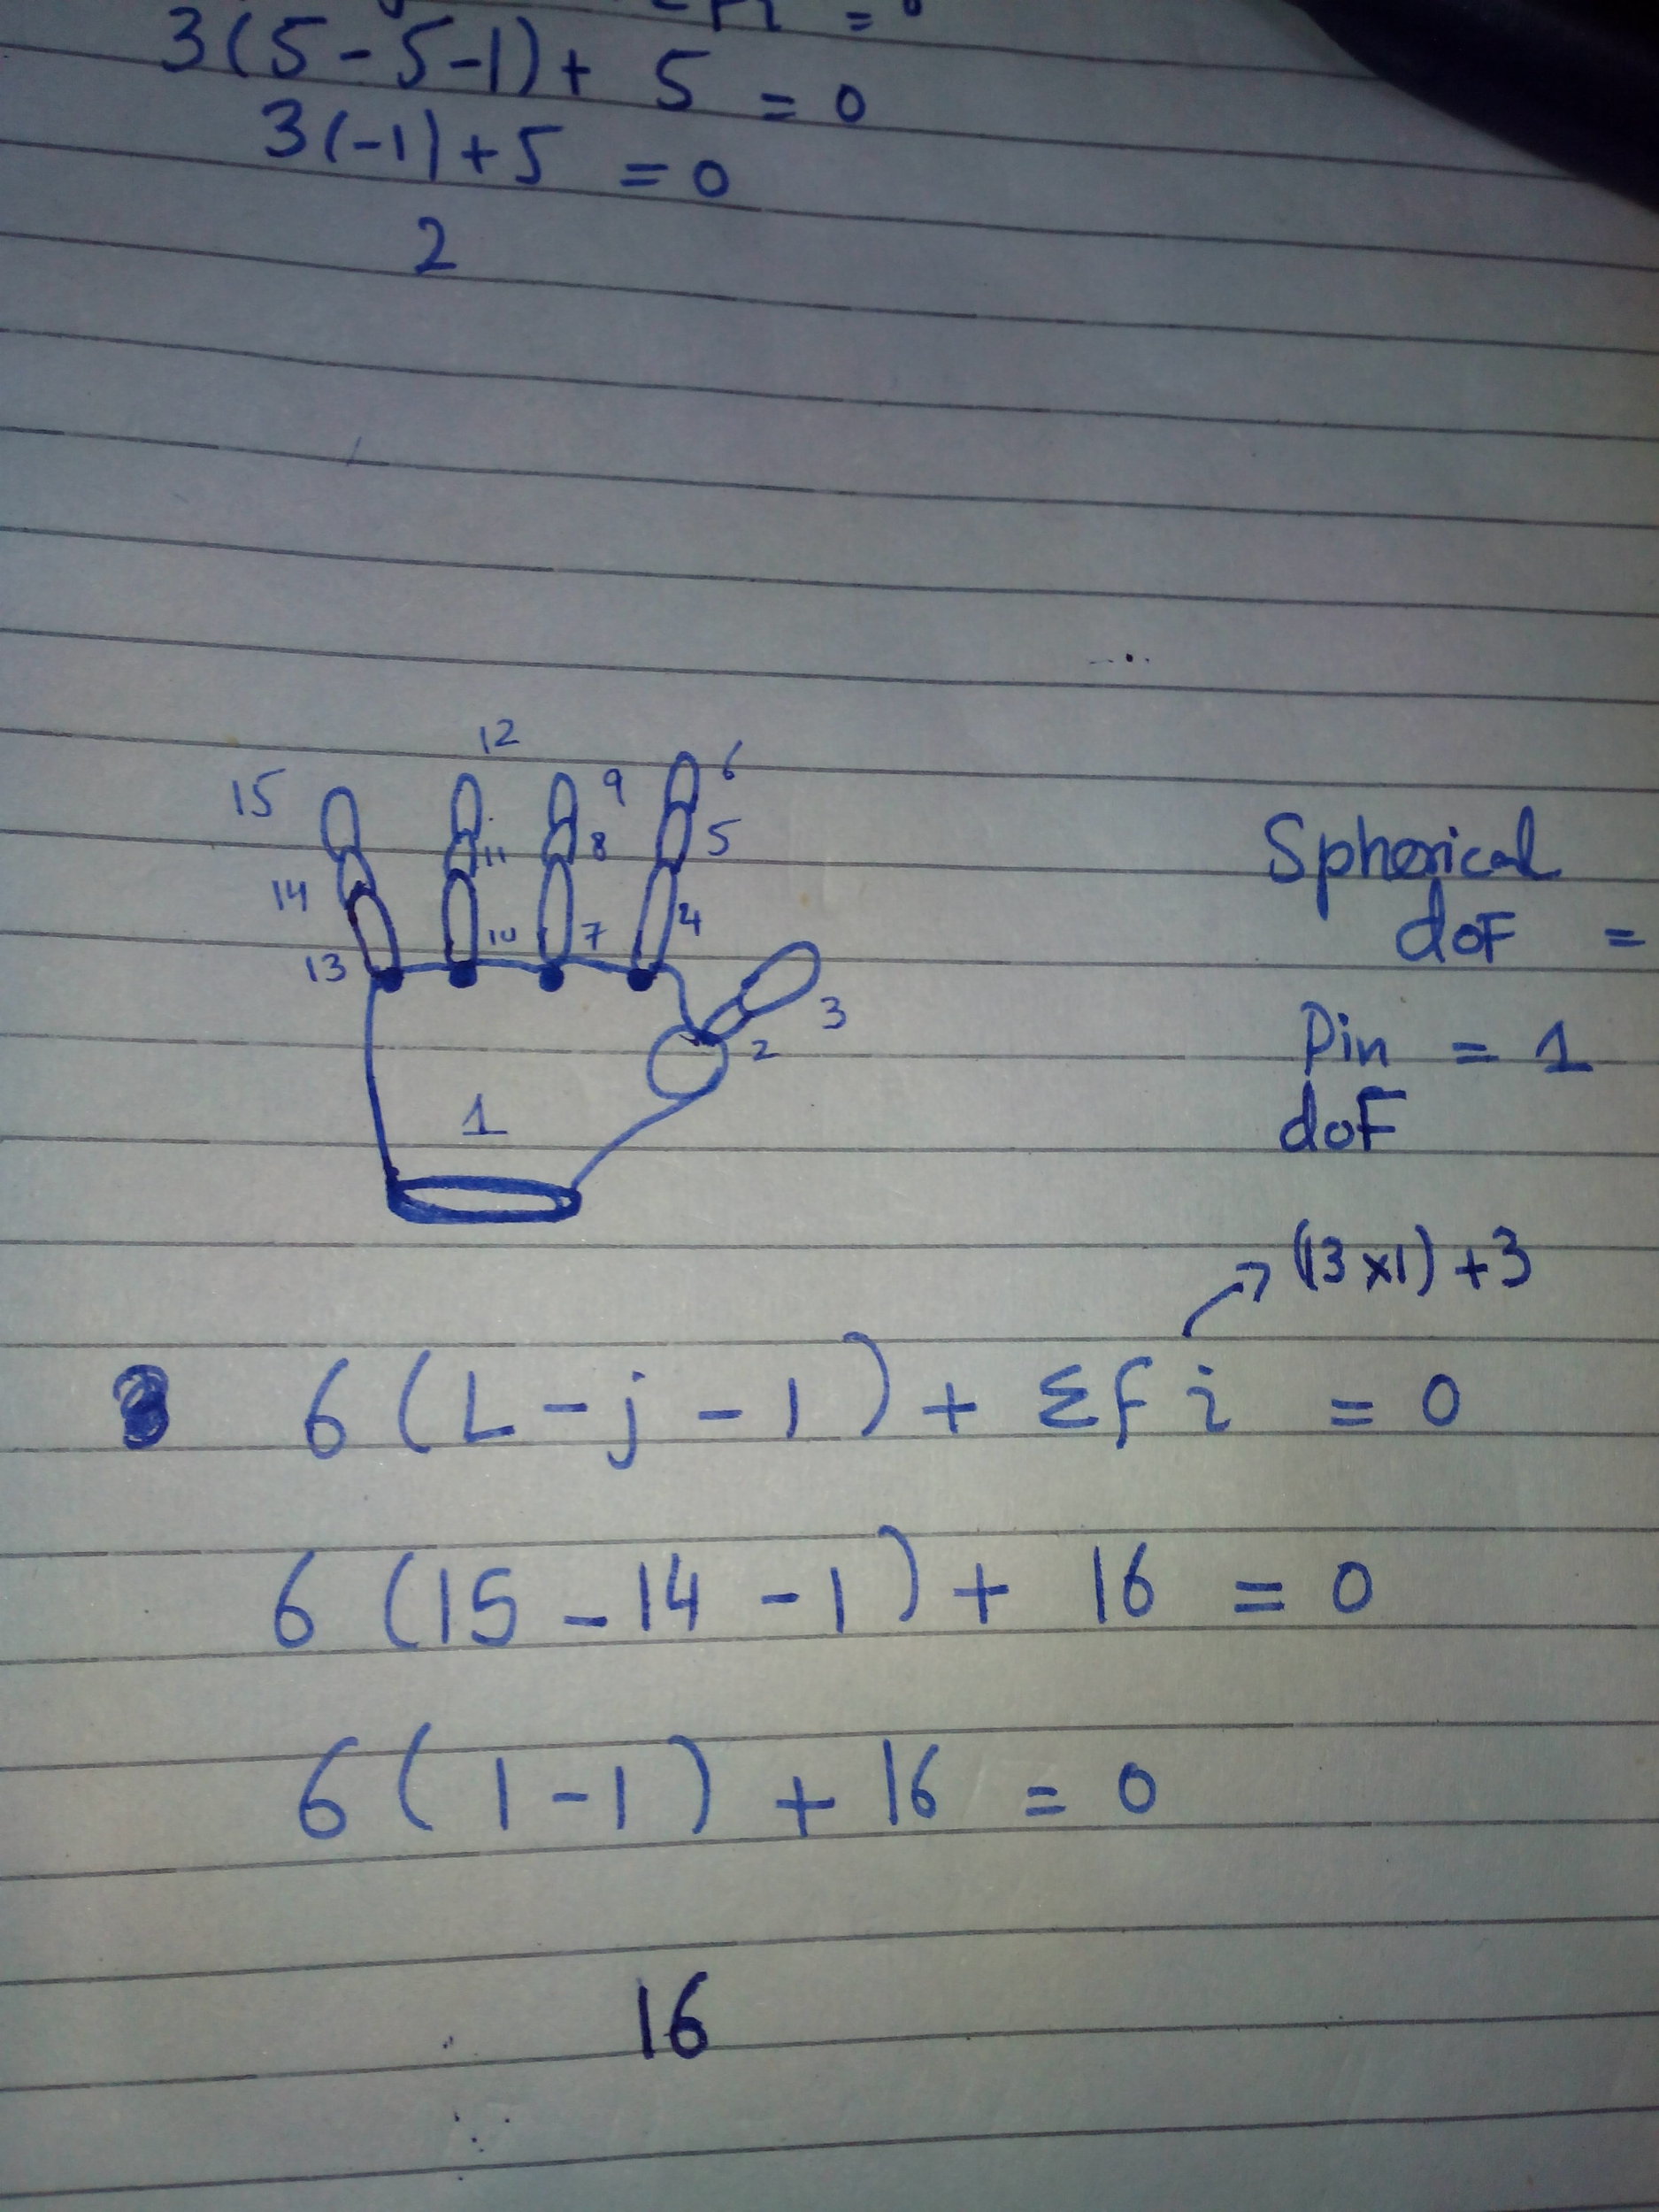 = 0
3(5-5-1)+ 5 = 0
3(-1)+5 = 0
2
12
15
9
6
11
8
5
14
10
7
4
13
3
2
1
Spherical
doF =
Pin = 1
doF
(13x1)+3
6(L-j-1)+ Σfi = 0
6(15-14-1)+ 16 = 0
6(1-1) + 16 = 0
16